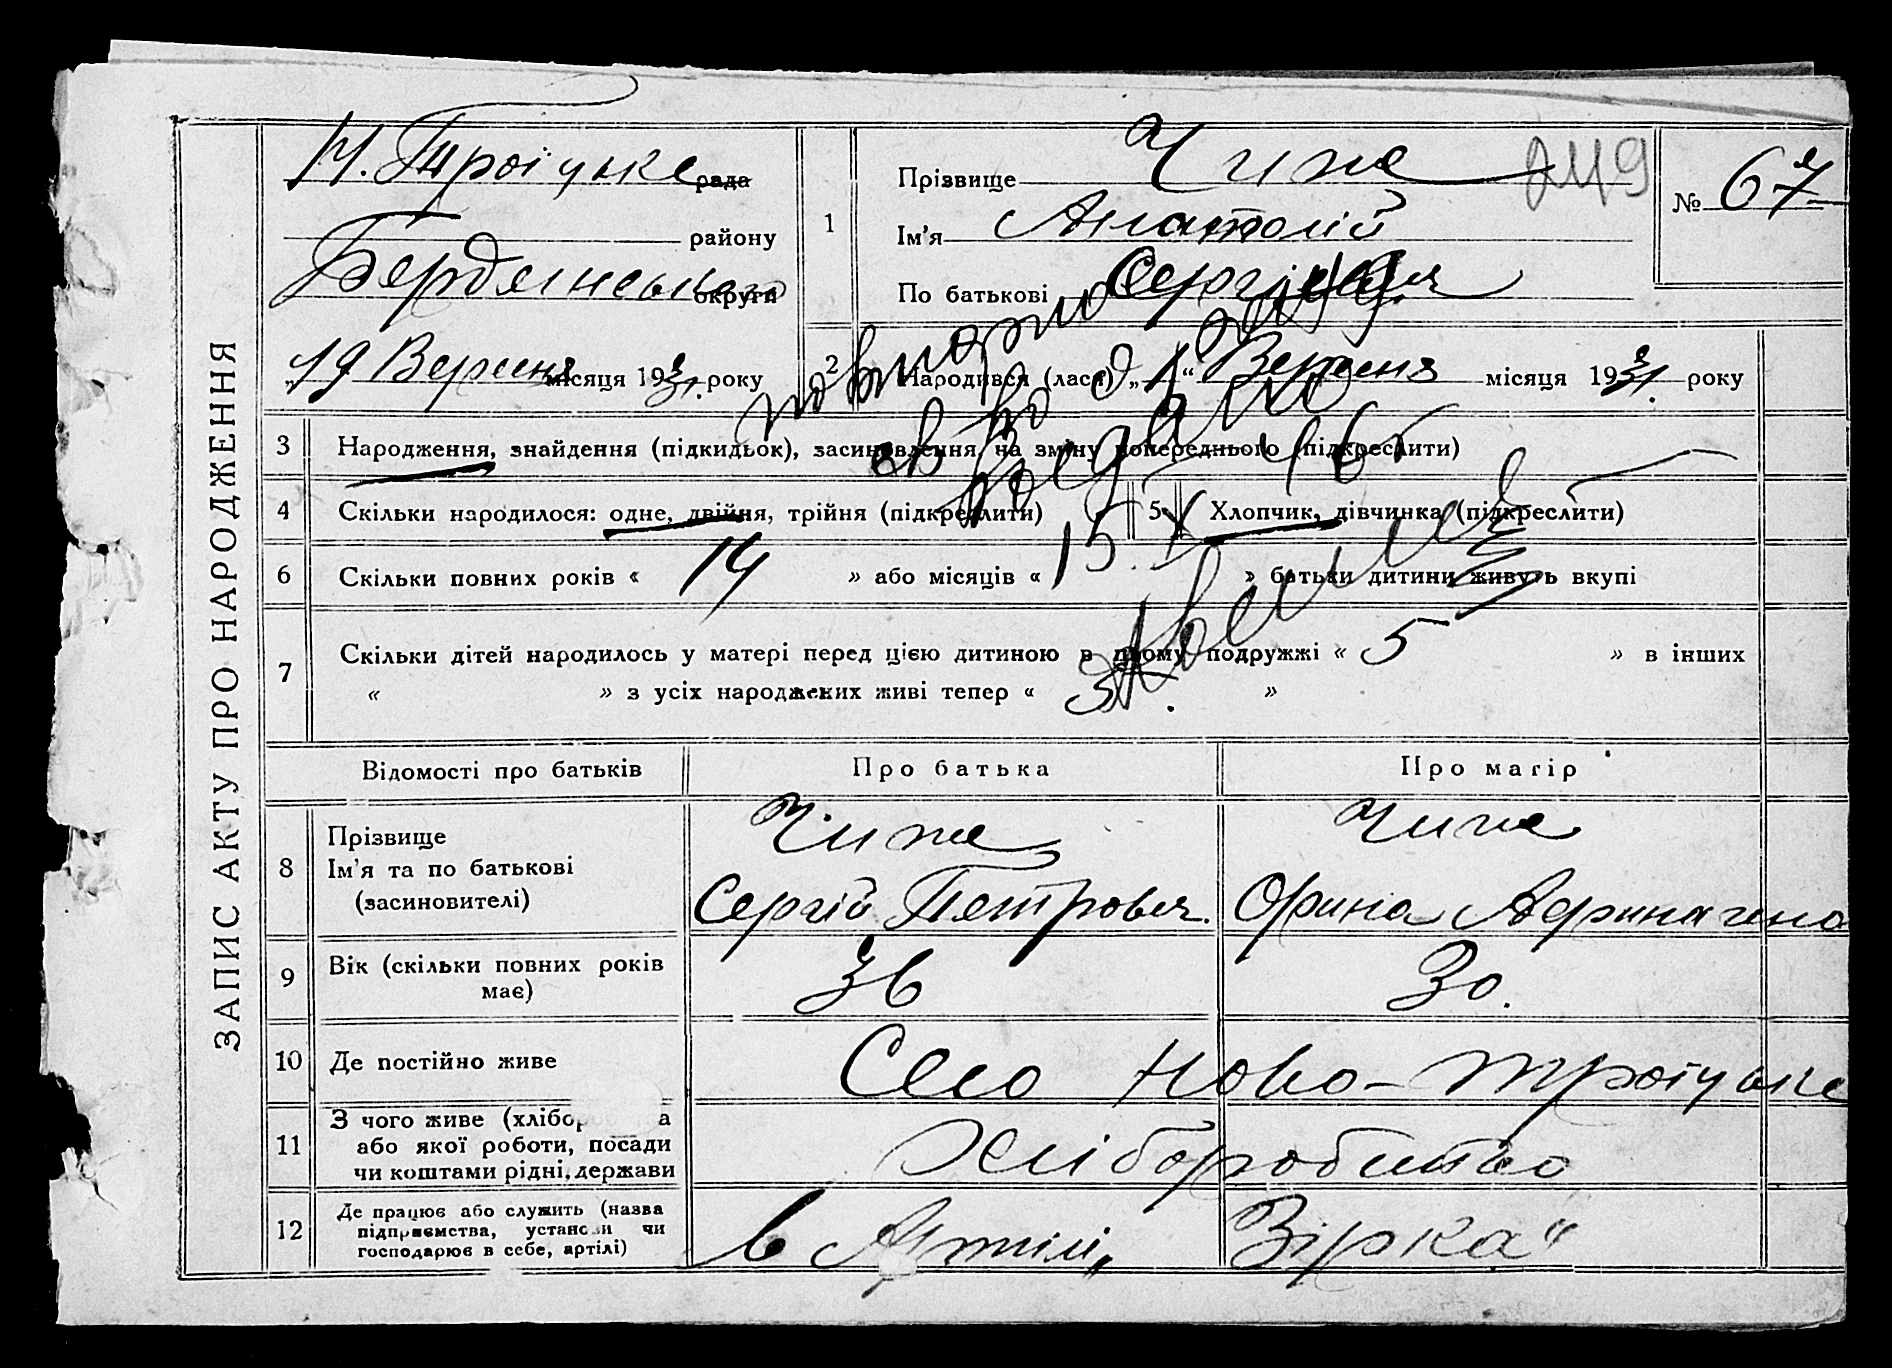 ЗАПИС АКТУ ПРО НАРОДЖЕННЯ
Н. Троїцьке рада
району
Бердянсько округи
„19 Вересня місяця 1931. року
1
Прізвище Чиже
Ім'я Анатолій
По батькові Сергієвич
249
№ 67
2 Народився (лася) „1“ Вересня місяця 1931. року
повторно
видано
3 Народження, знайдення (підкидьок), засиновлення, на зміну попереднього (підкреслити)
4 Скільки народилося: одне, двійня, трійня (підкреслити)
5 Хлопчик, дівчинка (підкреслити)
6 Скільки повних років « 14 » або місяців « » батьки дитини живуть вкупі
7 Скільки дітей народилось у матері перед цією дитиною в цьому подружжі « 5 » в інших
« » з усіх народжених живі тепер « 3. »
Відомості про батьків
Про батька
Про матір
8 Прізвище
Ім'я та по батькові
(засиновителі)
Чиже
Сергій Петрович.
Чиже
Орина
9 Вік (скільки повних років
має)
36
30.
10 Де постійно живе
Село Ново-Троїцьке
11 З чого живе (хлібо а
або якої роботи, посади
чи коштами рідні, держави
Хліборобство
12 Де працює або служить (назва
підприємства, установи чи
господарює в себе, артілі)
в Артілі „Зірка“